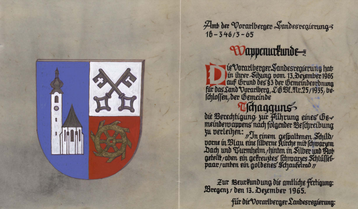 Amt der Vorarlberger Landesregierung
1b-346/3-65
Wappenurkunde
Die Vorarlberger Landesregierung hat
in ihrer Sitzung vom 13. Dezember 1965
auf Grund des § 3 der Gemeindeordnung
für das Land Vorarlberg, LGBl. Nr. 25/1935, be-
schlossen, der Gemeinde
Tschagguns
die Berechtigung zur Führung eines Ge-
meindewappens nach folgender Beschreibung
zu verleihen:
"In einem gespaltenen Schild
vorne in Blau eine silberne Kirche mit schwarzem
Dach und Turmhelm, hinten in Silber und Rot
geteilt, oben ein gekreuztes schwarzes Schlüssel-
paar, unten ein goldenes
Zur Beurkundung die amtliche Fertigung:
Bregenz, den 13. Dezember 1965.
Für die Vorarlberger Landesregierung: